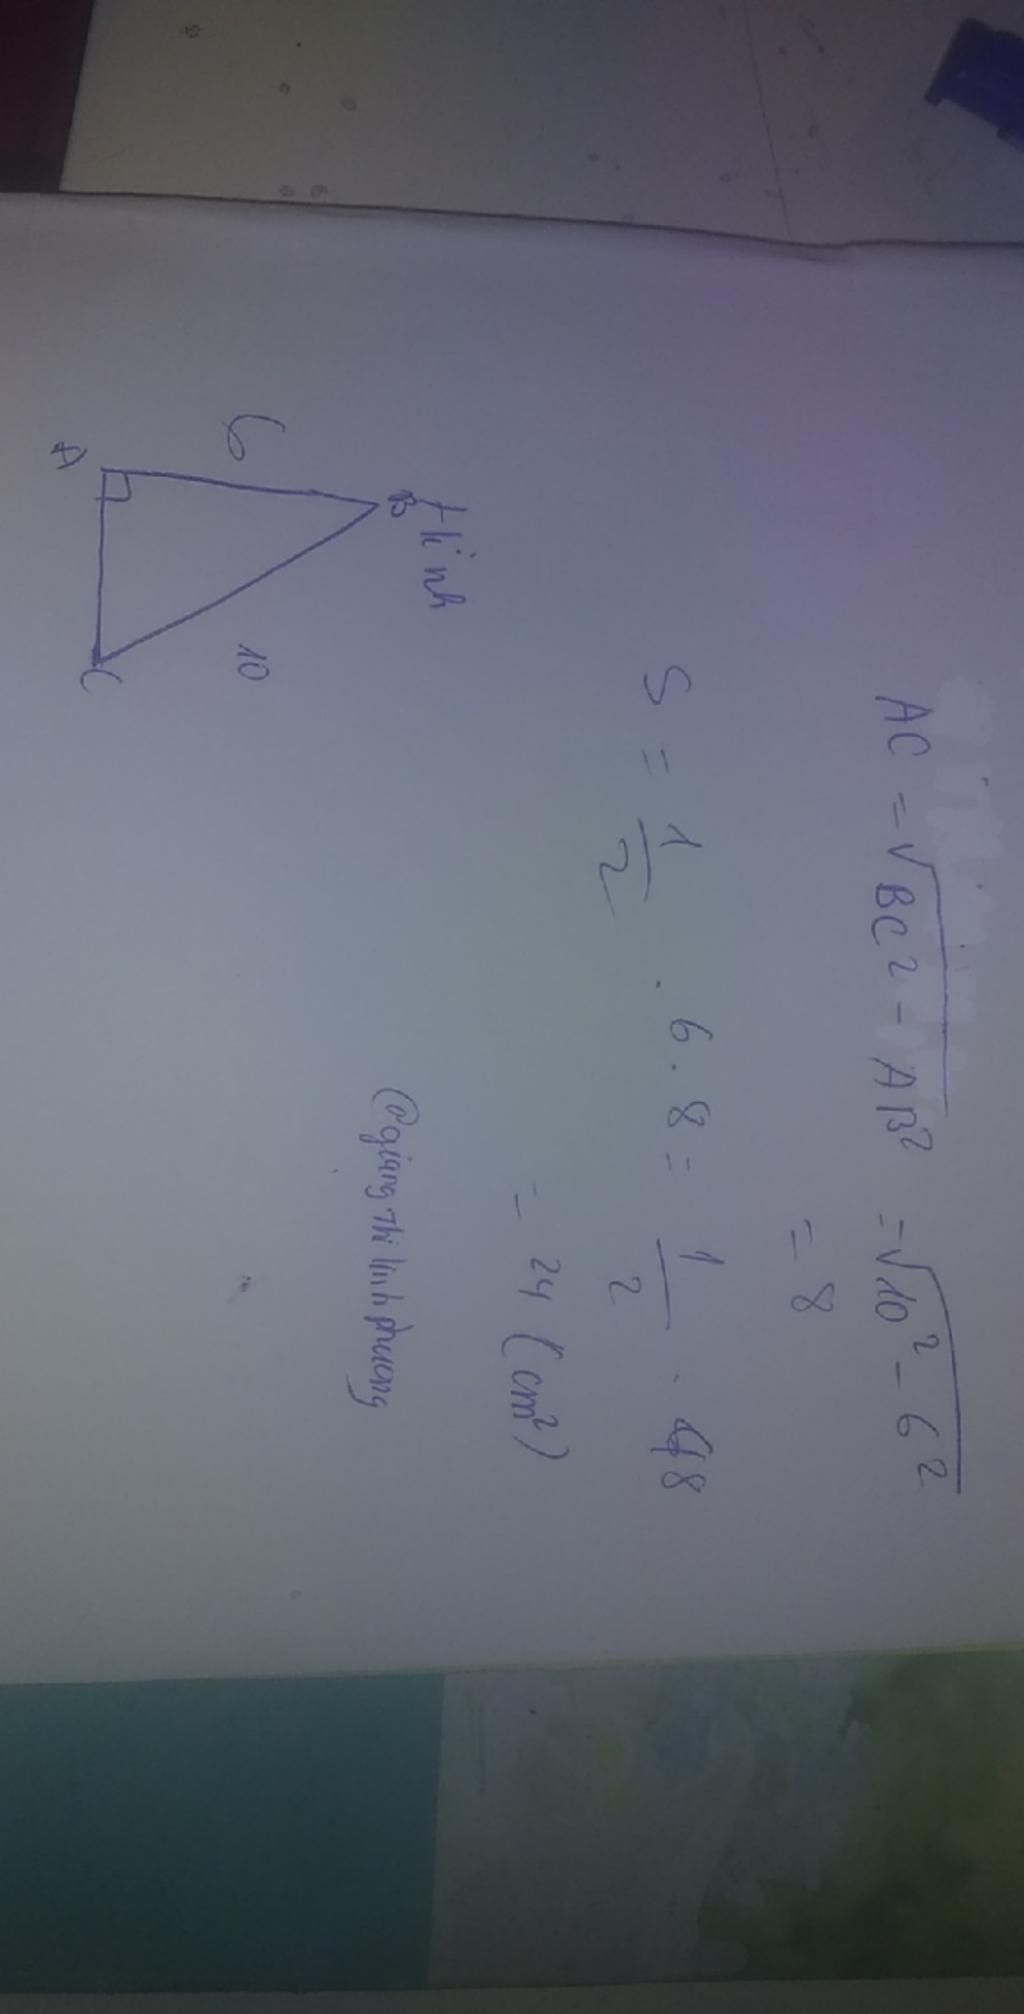 AC = √BC2 - AB² = √10² - 6²
= 8
S = 1/2 . 6 . 8 = 1/2 . 48
= 24 (cm²)
Hình
B
6
10
A
C
@giang Thi linh phương